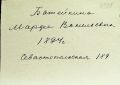 Батейкина
Марфа Васильевна
1894г.
Севастопольская 189